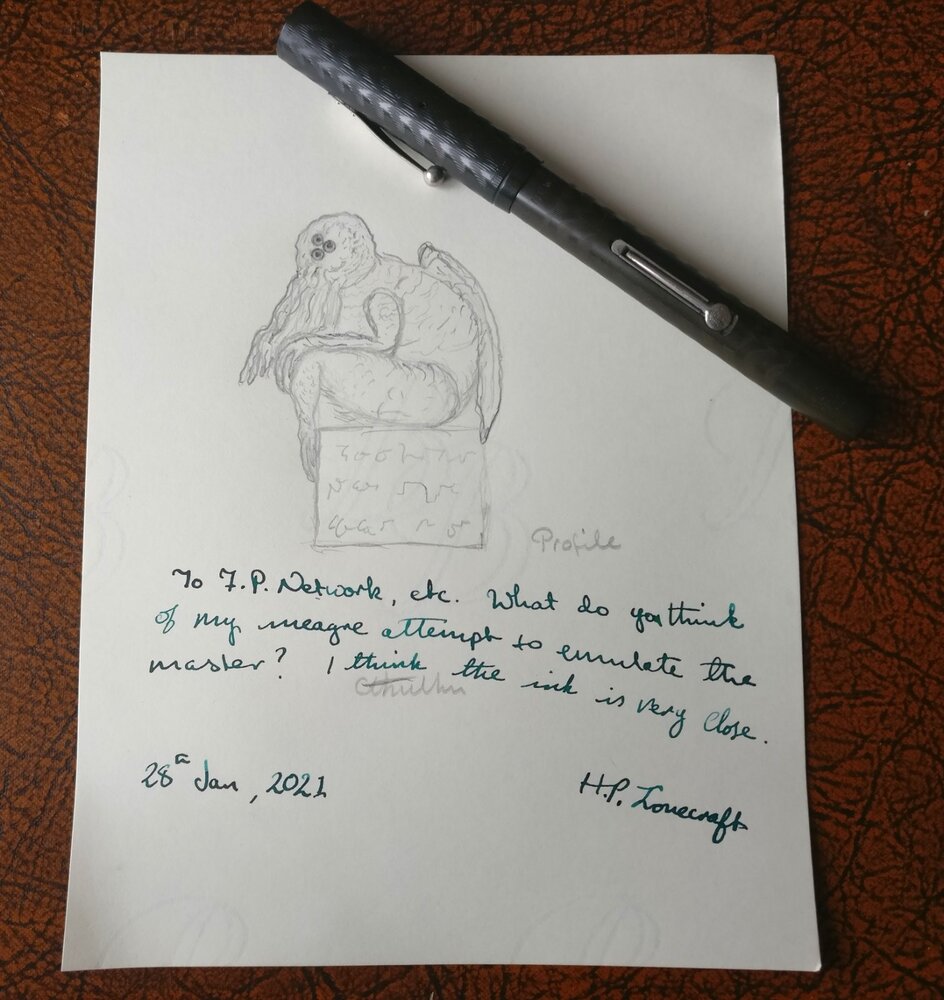 Profile
To F.P. Network, etc. What do you think
of my meagre attempt to emulate the
master? I think the ink is very close.
Cthulhu
28th Jan, 2021
H.P. Lovecraft